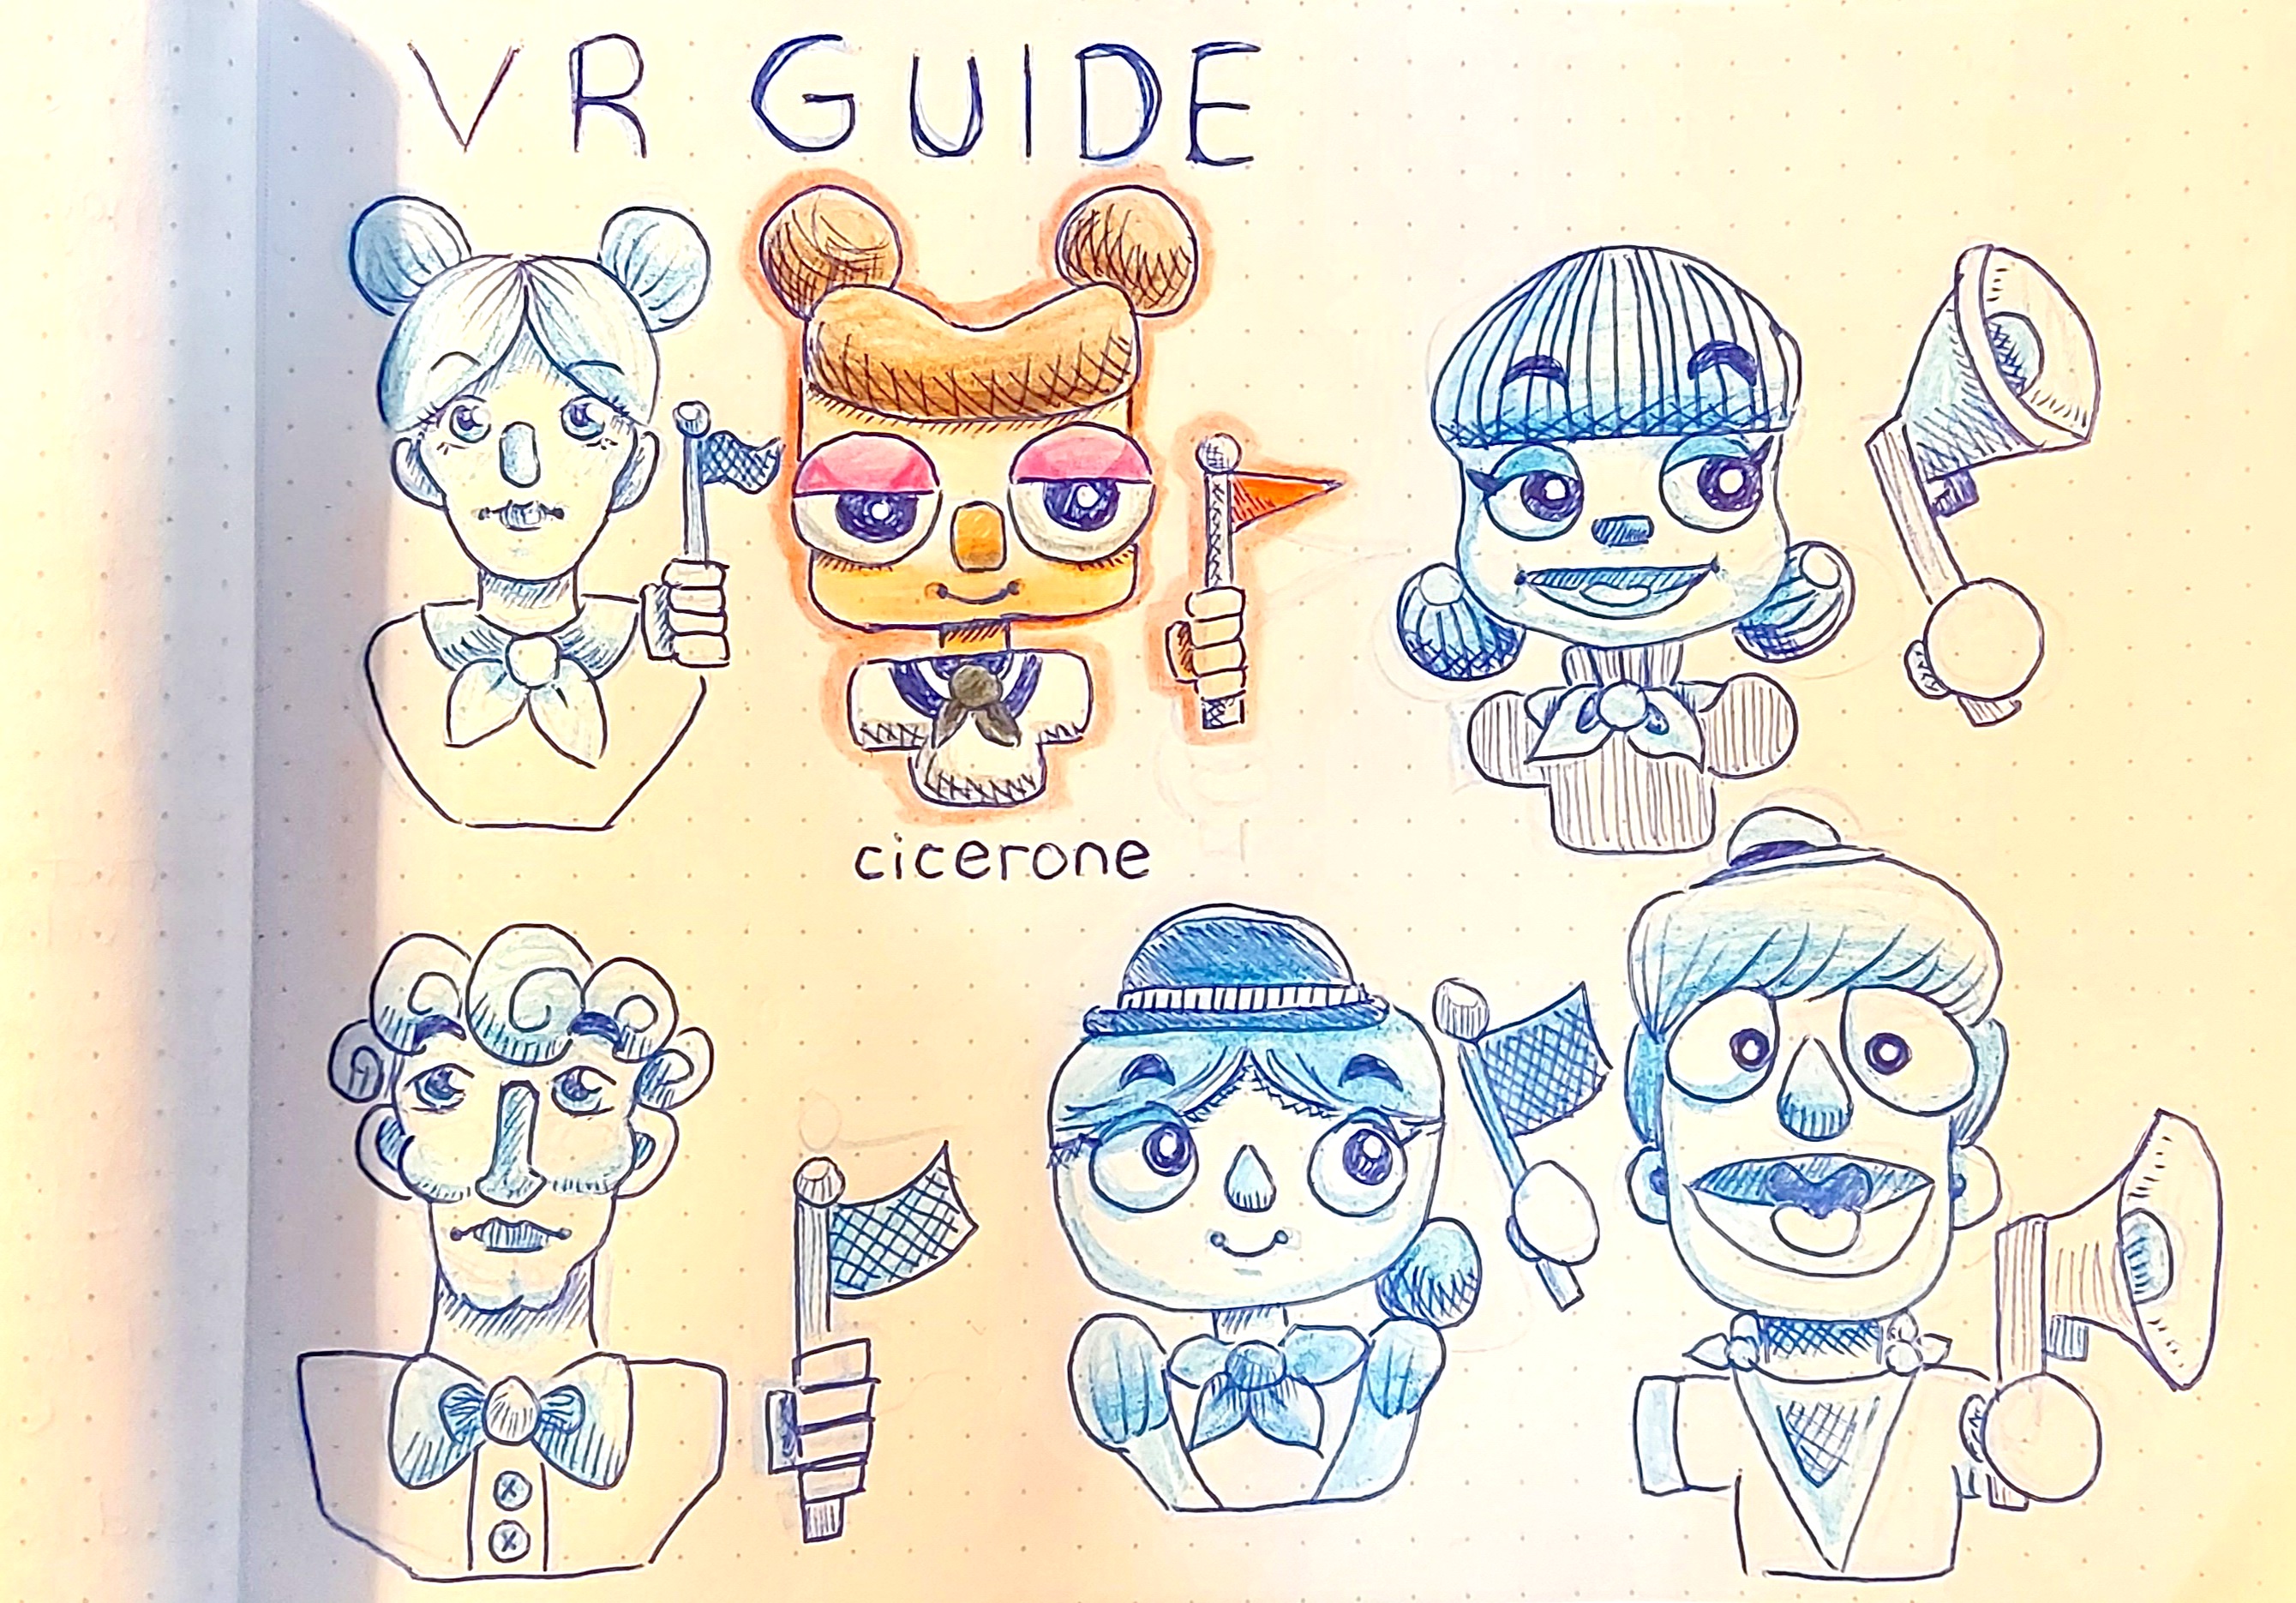 VR GUIDE
cicerone